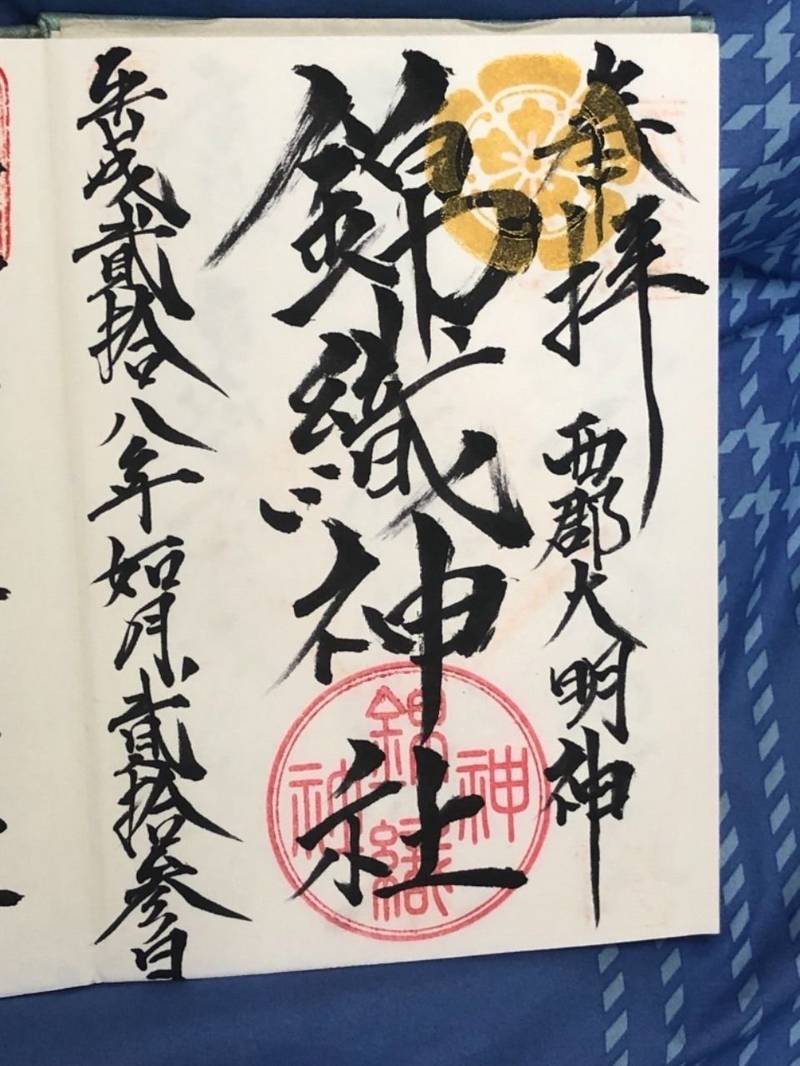 奉拝
西郡大明神
錦織神社
錦織神社
平成貳拾八年如月貳拾参日